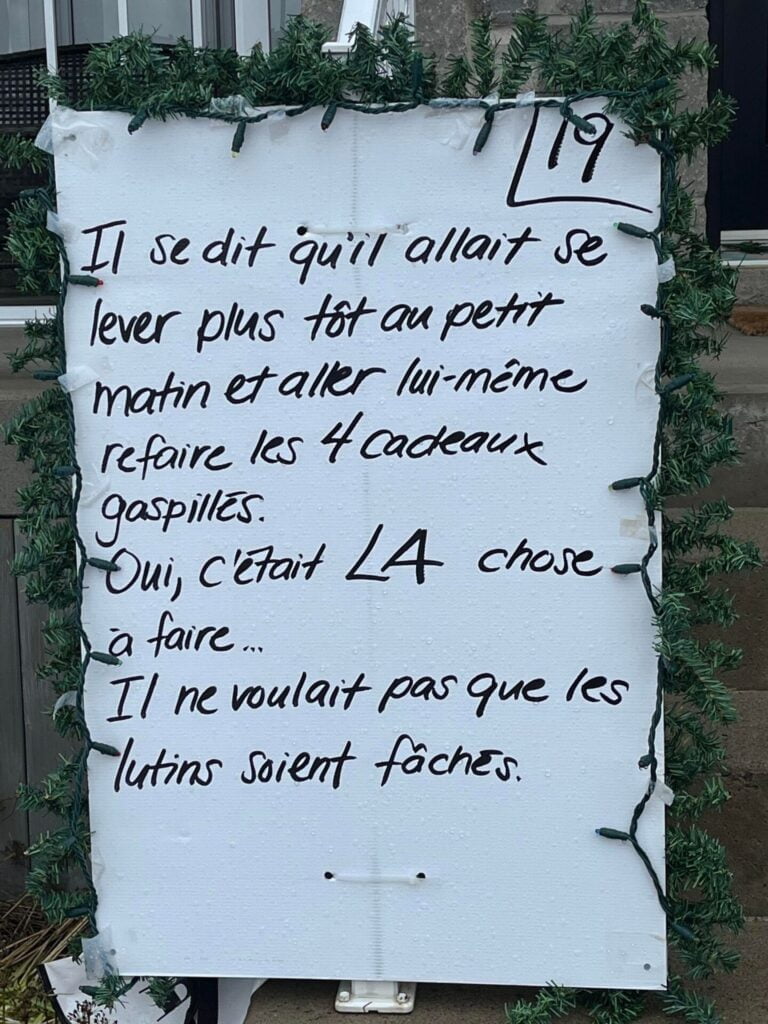 19
Il se dit qu'il allait se
lever plus tôt au petit
matin et aller lui-même
refaire les 4 cadeaux
gaspillés.
Oui, c'était LA chose
à faire...
Il ne voulait pas que les
lutins soient fâchés.